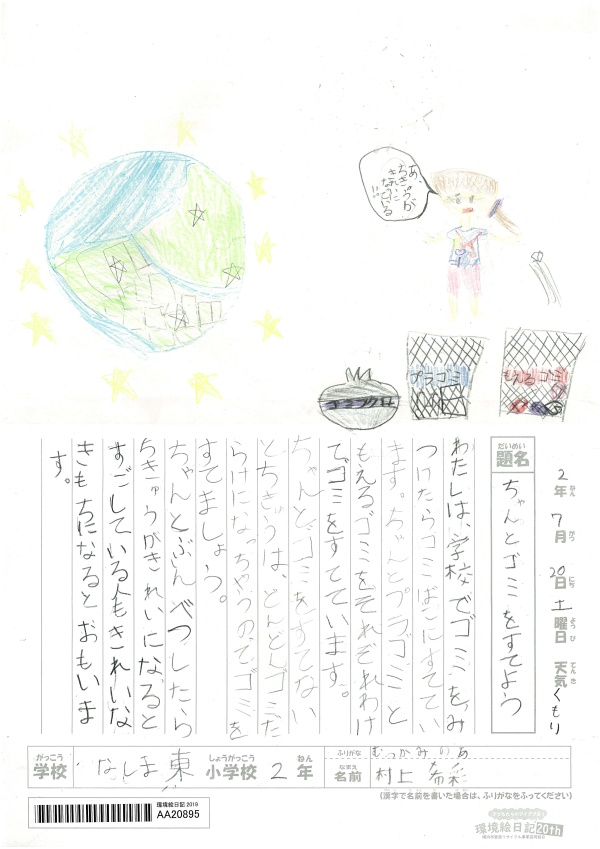 あ、
ちきゅうが
きれいに
なっている
!!
プラゴミ
もえるゴミ
2年 7月 20日 土曜日 天気 くもり
ねん がつ にち ようび てんき
だいめい
題名 ちゃんとゴミをすてよう
わたしは、学校でゴミをみ
つけたらゴミばこにすててい
ます。ちゃんとプラゴミと
もえるゴミをそれぞれわけ
てゴミをすてています。
ちゃんとゴミをすてない
とちきゅうは、どんどんゴミだ
らけになっちゃうのでゴミを
すてましょう。
ちゃんとぶんべつしたら
ちきゅうがきれいになると
すごしている人もきれいな
きもちになるとおもいま
す。
がっこう しょうがっこう ねん
学校 なしま東 小学校 2年
ふりがな むらかみ のあ
なまえ
名前 村上 希彩
(漢字で名前を書いた場合は、ふりがなをふってください)
環境絵日記 2019
AA20895
環境絵日記 20th